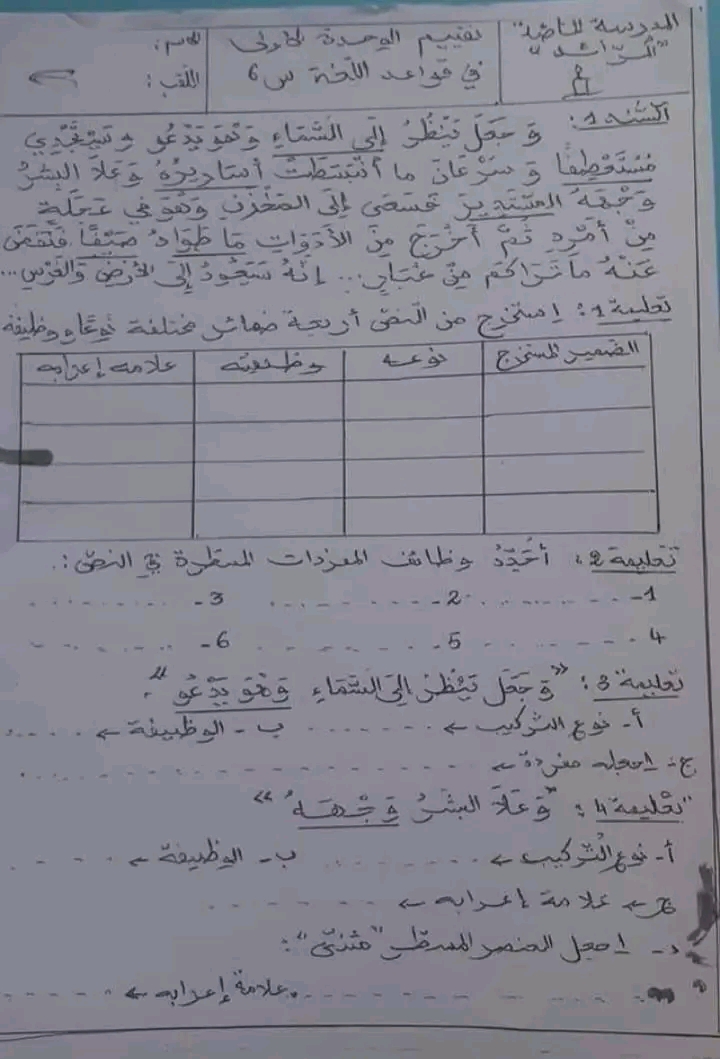 المدرسة الخاصة
"الرّاشد"
تقييم الوحدة الأولى
في قواعد اللّغة س 6
الاسم:
اللقب:
السّند 1: وَ جَعَلَ يَنْظُرُ إِلَى السَّمَاءِ وَ هُوَ يَدْعُو وَ يَسْتَجْدِي
مُسْتَعْطِفًا وَ سَرْعَانَ ما انْبَسَطَتْ أَسَارِيرُهُ وَ عَلَا البِشْرُ
وَجْهَهُ المُسْتَدِيرَ فَمَضَى إِلَى المَخْزَنِ وَهُوَ فِي عَجَلَةٍ
مِنْ أَمْرِهِ ثُمَّ أَخْرَجَ مِنَ الأَدَوَاتِ مَا طَوَاهُ صَيْفًا فَنَفَضَ
عَنْهُ مَا تَرَاكَمَ مِنْ غُبَارٍ... إِنَّهُ سَيَعُودُ إِلَى الأَرْضِ وَالغَرْسِ...
تعليمة 1: استخرج من النصّ أربعة ضمائر مختلفة نوعًا و وظيفة
الضمير المستخرج نوعه وظيفته علامة إعرابه
تعليمة 2: أُحَدِّدُ وظائف المفردات المسطّرة في النصّ:
1- ........ 2- ........ 3- ........
4 ........ 5- ........ 6- ........
تعليمة 3: "وَ جَعَلَ يَنْظُرُ إِلَى السَّمَاءِ وَ هُوَ يَدْعُو".
أ- نوع التركيب ← ........ ب- الوظيفة ← ........
ج- اجعله مفردة ← ........
تعليمة 4: "وَ عَلَا البِشْرُ وَجْهَهُ"
أ- نوع التركيب ← ........ ب- الوظيفة ← ........
ج ← علامة إعرابه ← ........
د- اجعل العنصر المسطّر "مثنّى":
........ علامة إعرابه ← ........